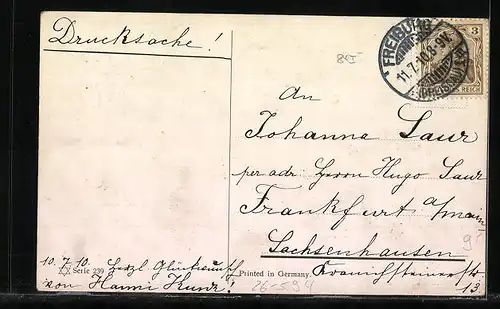 Drucksache!
FREIBURG
11.7.10.8-9V.
(BREISGAU)
3
REICH
An
Johanna Saur
per adr. Herrn Hugo Saur
Frankfurt a/main
Sachsenhausen
Kranichsteinerstr.
13
10.7.10. Herzl. Glückwunsch
von Hanni Kunz!
Serie 239
Printed in Germany.
26-594